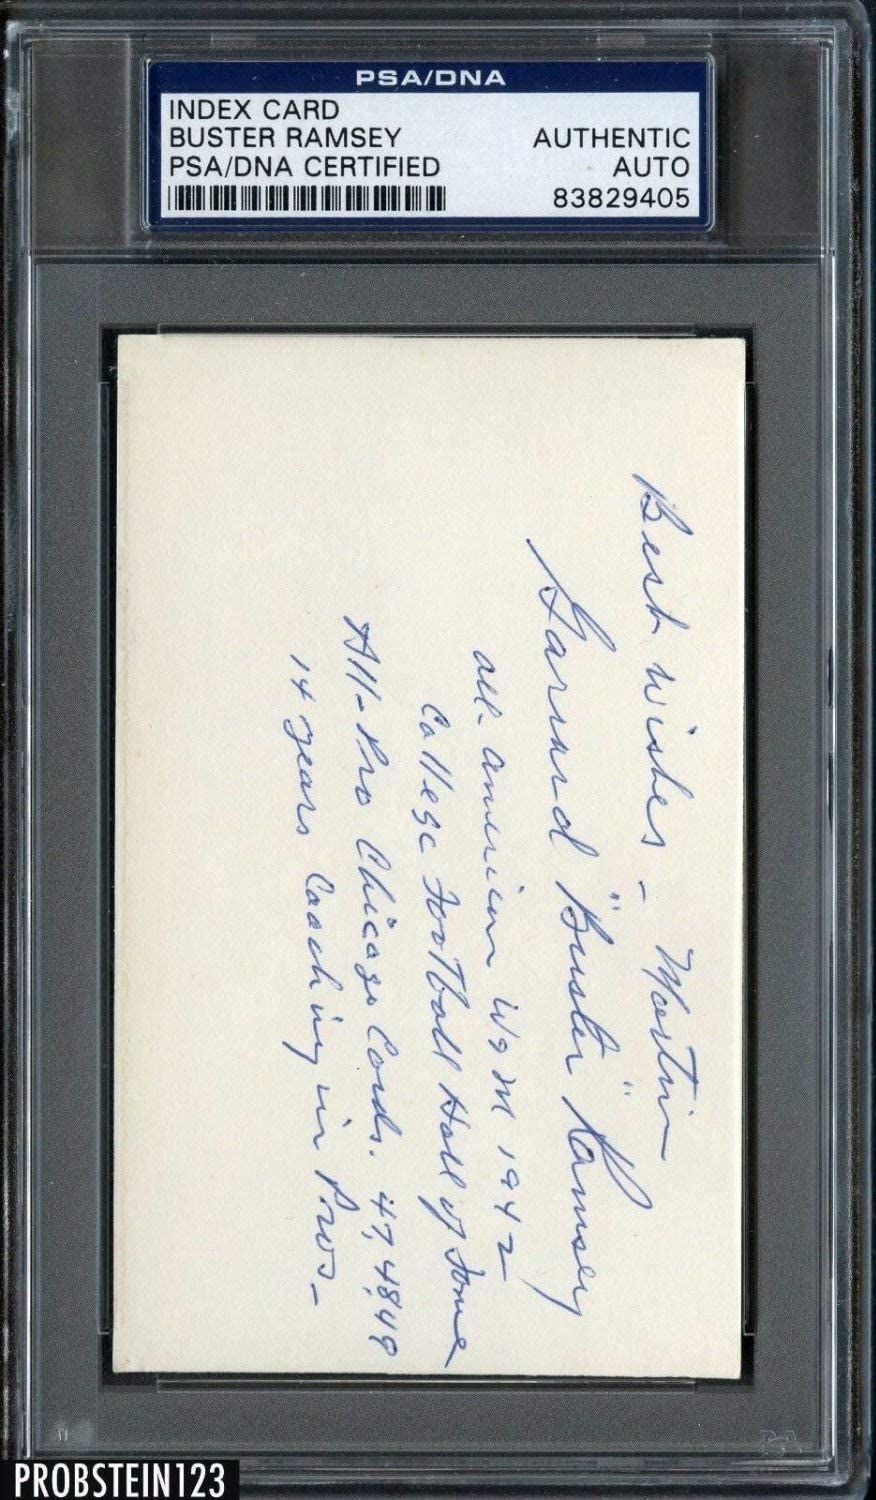 PSA/DNA
INDEX CARD
BUSTER RAMSEY
PSA/DNA CERTIFIED
AUTHENTIC
AUTO
83829405
Best wishes - Martin
Garrard "Buster" Ramsey
all-american W&M 1942
College FooTball Hall of Fame
All-Pro Chicago Cards. 47,48,49
14 years Coaching in Pros -
PROBSTEIN123